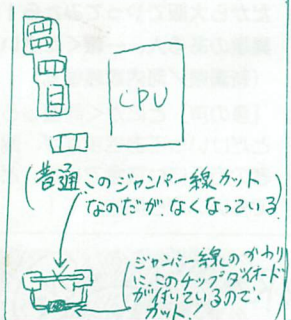 CPU
(普通このジャンパー線カット
なのだが、なくなっている)
ジャンパー線のかわり
に、このチップダイオード
が付いているので、
カット!